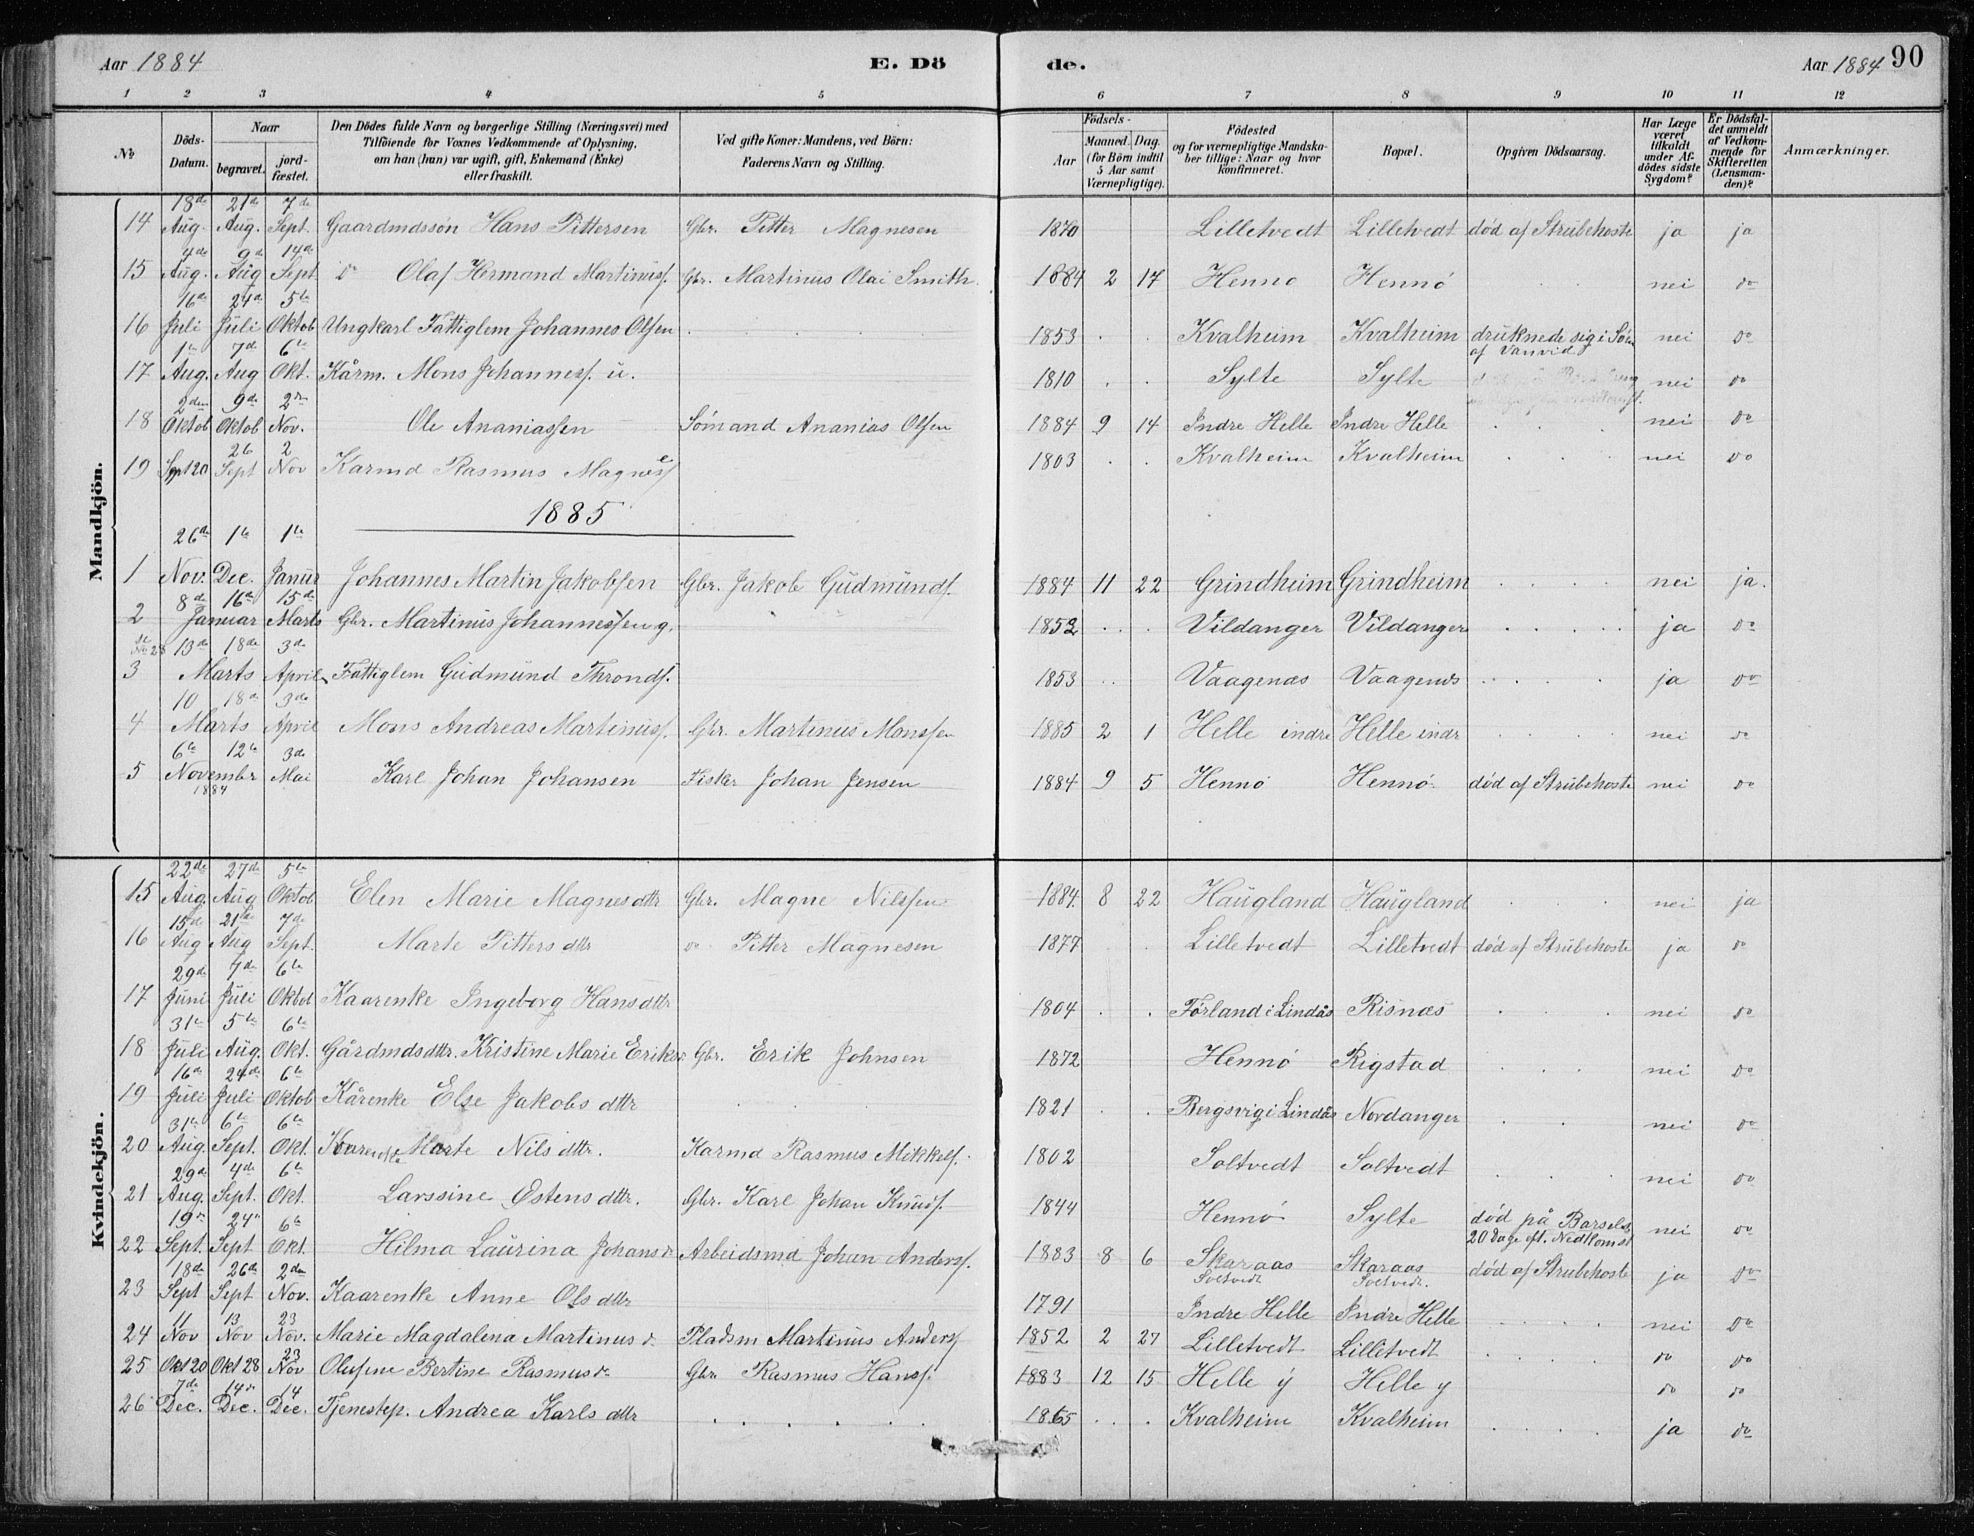 Aar 1884 E. Dö de. Aar 1884 90
1 2 3 4 5 6 7 8 9 10 11 12
No. Döds-Datum. Naar begravet. jord-fæstet. Den Dödes fulde Navn og borgerlige Stilling (Næringsvei) med Tilföiende för Voxnes Vedkommende af Oplysning, om han (hun) var ugift, gift, Enkemand (Enke) eller fraskilt. Ved gifte Koner: Mandens, ved Börn: Faderens Navn og Stilling. Födsels- Aar Maaned. Dag. (for Börn indtil 5 Aar samt Værnepligtige). Födested og for værnepligtige Mandskaber tillige: Naar og hvor konfirmeret. Bopæl. Opgiven Dödsaarsag. Har Læge været tilkaldt under Afdödes sidste Sygdom? Er Dödsfaldet anmeldt af Vedkommende for Skifteretten (Lensmanden)? Anmærkninger.
Mandkjön.
14 18de Aug. 21de Aug. 7de Sept. Gaardmdssön Hans Pittersen Gbr. Pitter Magnesen 1870 Lilletvedt Lilletvedt død af Strubehoste ja ja
15 4de Aug. 9de Aug 14de Sept do Olaf Hermand Martinuss. Gbr. Martinus Olai Smith 1884 2 17 Henno Hennö nei do
16 16de Juli 24de Juli 5te Oktob Ungkarl Fattiglem Johannes Olsen 1853 Kvalheim Kvalheim druknede sig i Søen af Vanvid nei do
17 1te Aug. 7de Aug 6te Okt. Kårm. Mons Johanness. u. 1810 Sylte Sylte nei do
18 2den Oktob 9de Oktob 2den Nov. Ole Ananiassen Sømand Ananias Olsen 1884 9 14 Indre Helle Indre Helle nei do
19 Sept 20 26 Sept 2 Nov Karmd Rasmus Magness 1803 Kvalheim Kvalheim nei do
1885
1 26de Nov. 1te Dec. 1te Januar Johannes Martin Jakobsen Gbr. Jakob Gudmunds. 1884 11 22 Grindheim Grindheim nei ja.
2 8de 16de Januar 15de Marts Gbr. Martinus Johannessen g. 1852 Vildanger Vildanger ja do
3 13de 18de Marts 3de April Fattiglem Gudmund Thronds. 1853 Vaagenæs Vaagenæs ja do
4 10 18de Marts 3de April Mons Andreas Martinuss. Gbr. Martinus Monssen 1885 2 1 Helle indre Helle indr nei do
5 6te 12te November 1884 3de Mai Karl Johan Johansen Fisker Johan Jensen 1884 9 5 Hennö Hennö død af Strubehoste nei do
Kvindekjön.
15 22de Aug. 27de Aug 5te Oktob Elen Marie Magnesdttr Gbr. Magne Nilssen 1884. 8 22 Haugland Haugland nei ja
16 15de Aug 21de Aug 7de Sept. Marte Pitters dttr do Pitter Magnesen 1877 Lilletvedt Lilletvedt død af Strubehoste ja do
17 29de Juni 7de Juli 6te Oktob Kaarenke Ingeborg Hans dttr 1804 Førland i Lindås Risnæs nei do
18 31te Juli 5te Aug. 6te Okt. Gårdmdsdttr. Kristine Marie Eriksd Gbr. Erik Johnsen 1872 Hennö Rigstad nei do
19 16de Juli 24de Juli 6te Oktob Kårenke Else Jakobs dttr 1821 Bergsvig i Lindås Nordanger nei do
20 31te Aug. 6te Sept. 6te Okt. Karenke Marte Nils dttr. Karmd Rasmus Mikkels. 1802 Soltvedt Soltvedt nei do
21 29de Aug. 4de Sept. 6te Okt. Larssine Østens dttr. Gbr. Karl Johan Knuds. 1844 Hennö Sylte død på Barselse. 20 Dage eft. Nedkomst nei do
22 19de Sept. 24de Sept 6te Okt. Hilma Laurina Johans d. Arbeidsmd Johan Anders. 1883 8 6 Skaraas Soltvedt Skaraas Soltvedt. død af Strubehoste ja do
23 18de Sept 26de Sept 2den Nov. Kaarenke Anne Ols dttr 1791 Indre Helle Indre Helle nei do
24 11 Nov 13 Nov 23 Nov. Marie Magdalena Martinus d. Pladsm Martinus Anders 1852 2 27 Lilletvedt Lilletvedt do do
25 Okt 20 Okt 28 23 Nov Olufine Bertine Rasmus d. Gbr. Rasmus Hans. 1883 12 15 Helle y Helle y do do
26 7de Dec. 14de Dec. 14 Dec. Tjenestep. Andrea Karls dttr 1865 Kvalheim Kvalheim ja do